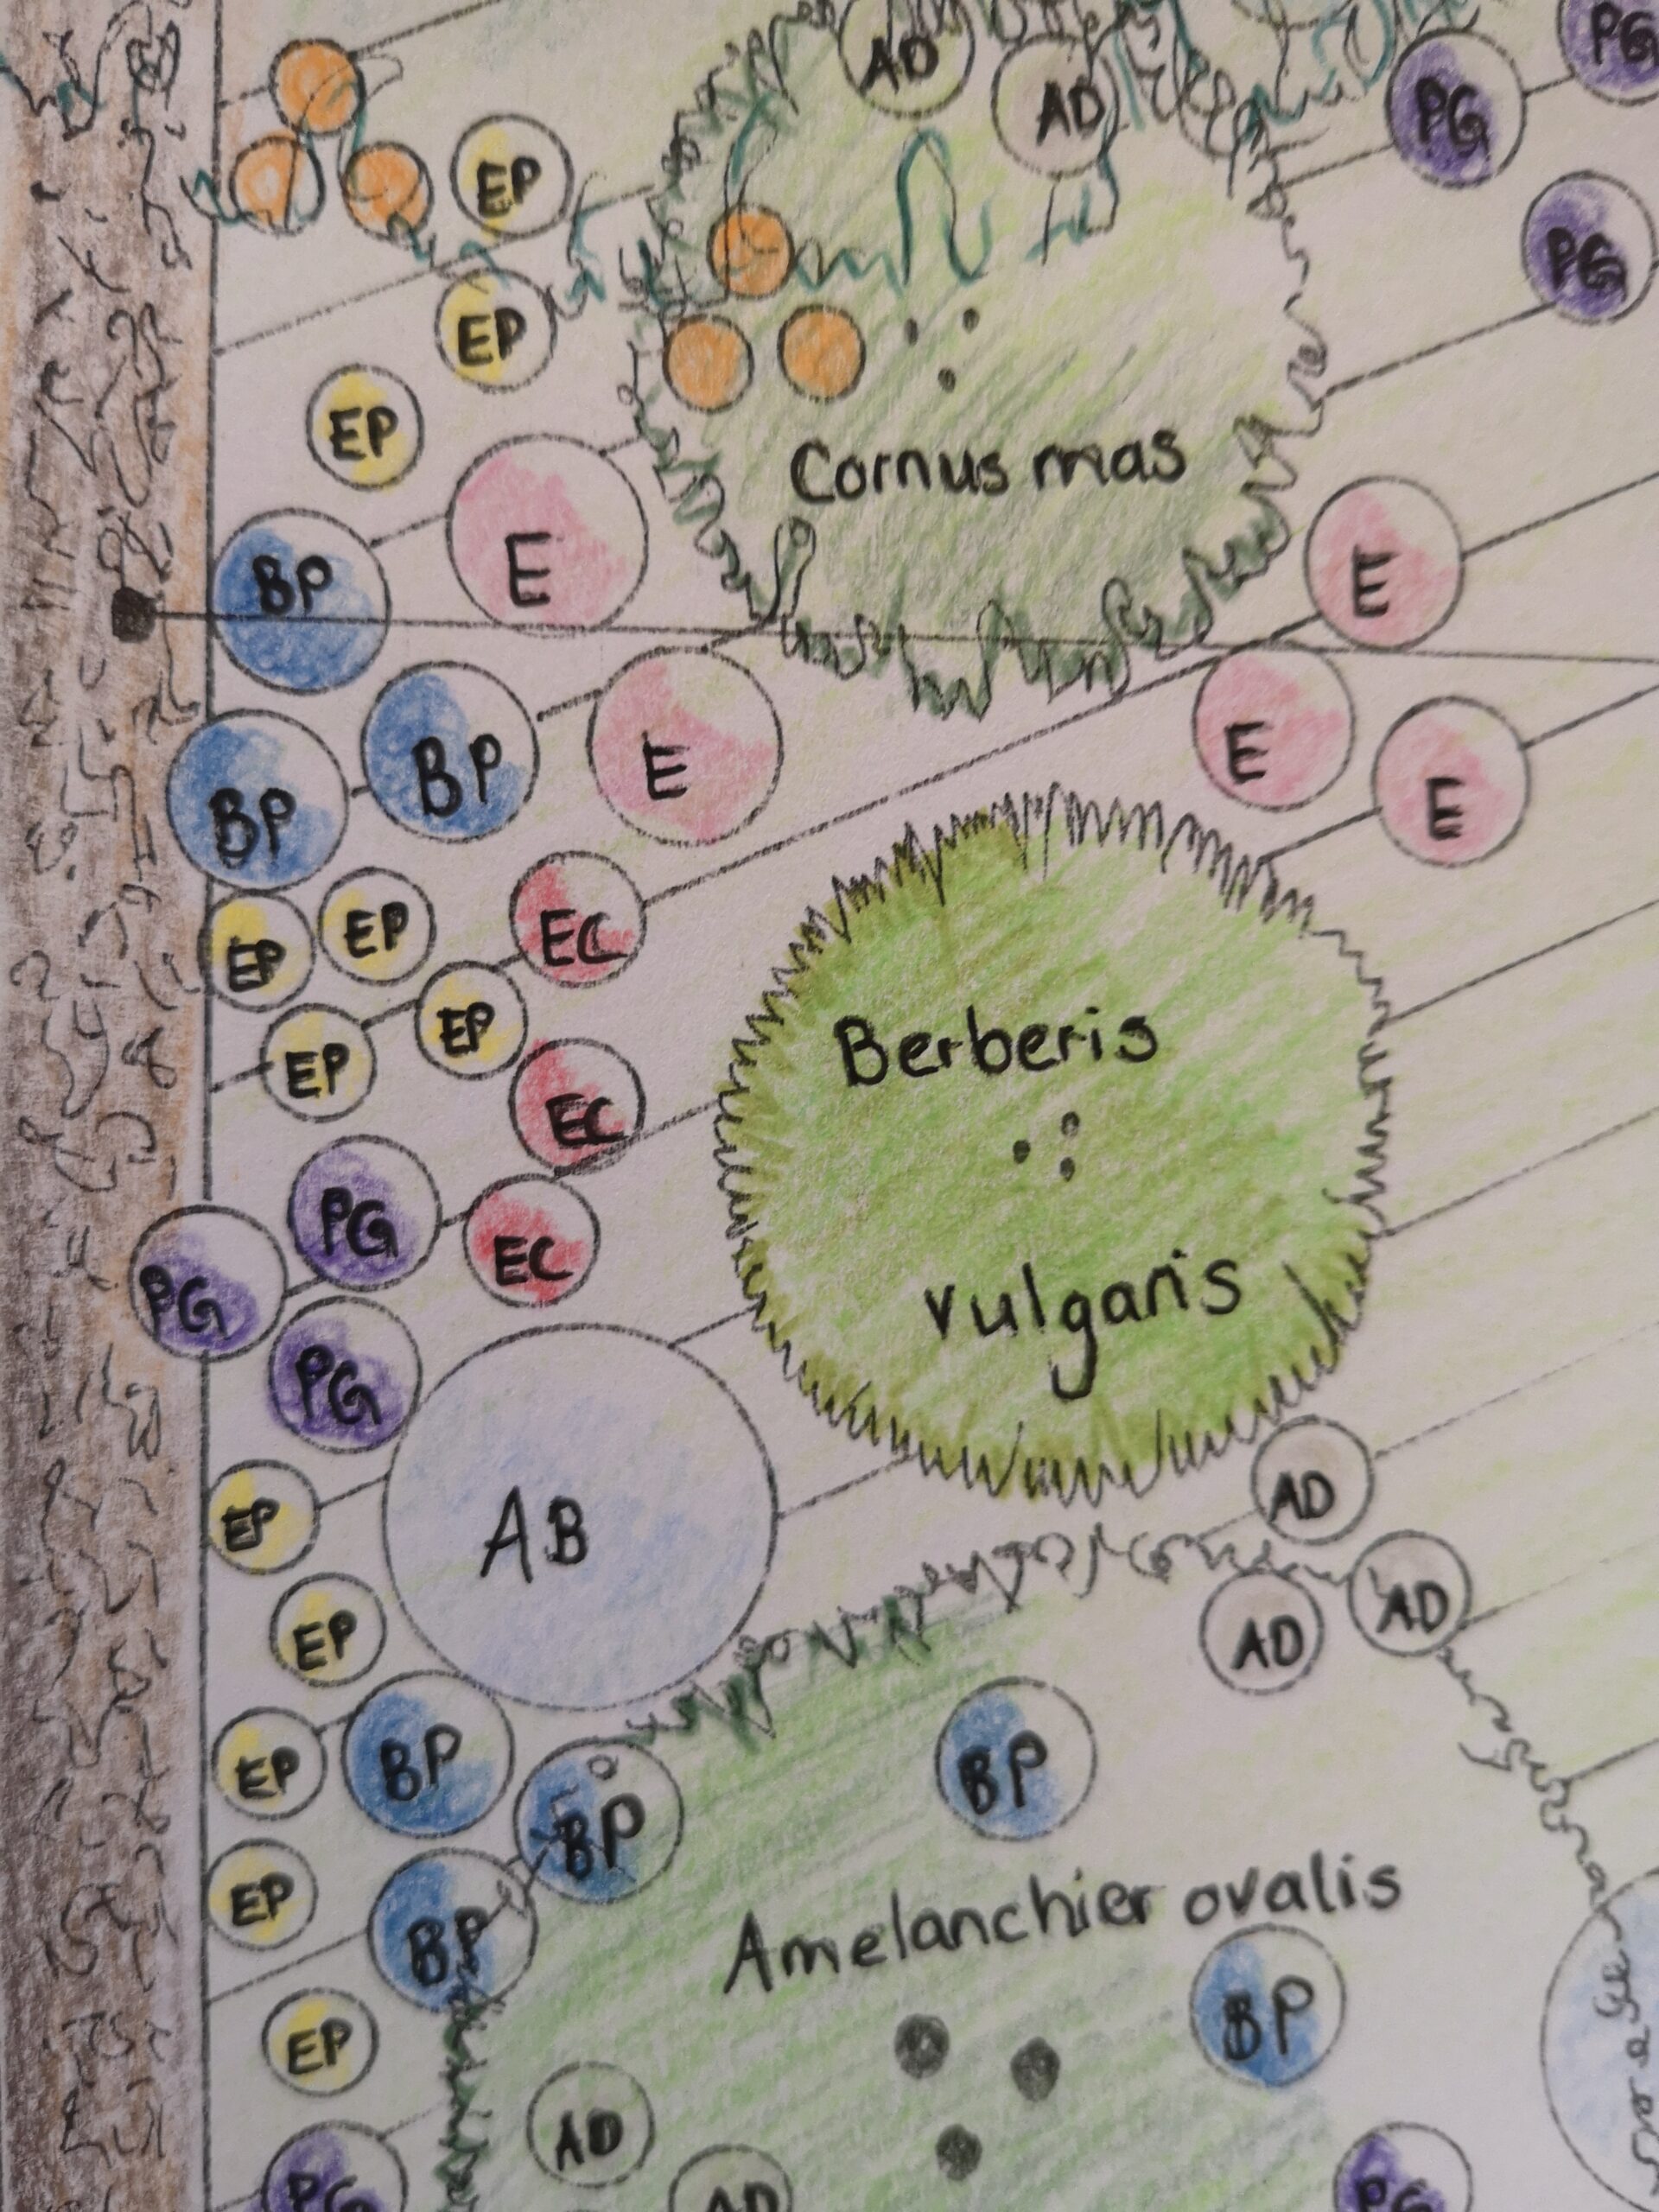 AD
AD
PG
PG
EP
PG
EP
EP
Cornus mas
BP
E
E
BP
BP
E
E
E
EP
EP
EC
EP
EP
EC
Berberis
vulgaris
PG
EC
PG
PG
AB
EP
AD
AD
AD
EP
EP
BP
BP
BP
EP
BP
Amelanchier ovalis
BP
EP
AD
PG
AD
PG